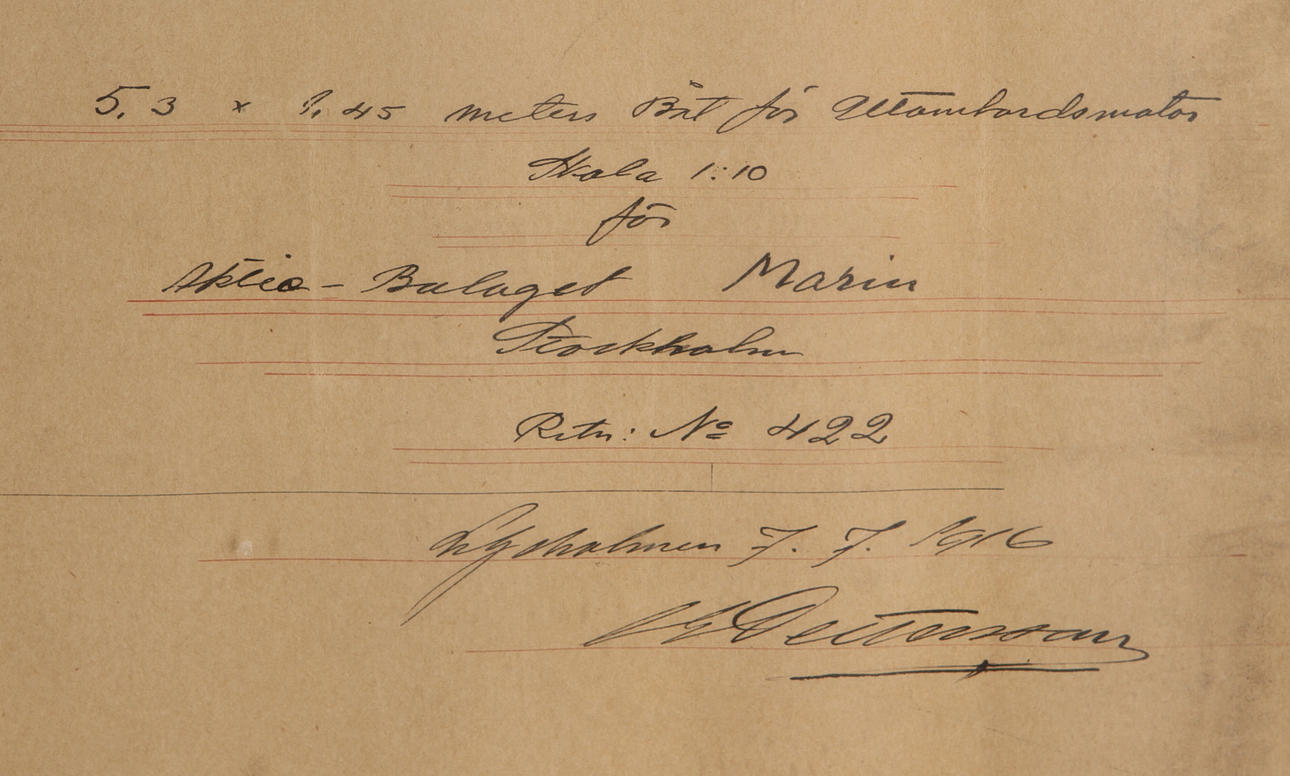 5.3 x 1.45 meters Båt för Utombordsmotor
Skala 1:10
för
Aktie-Bolaget Marin
Stockholm
Ritn: No 422
7. 7. 1916
Pettersson